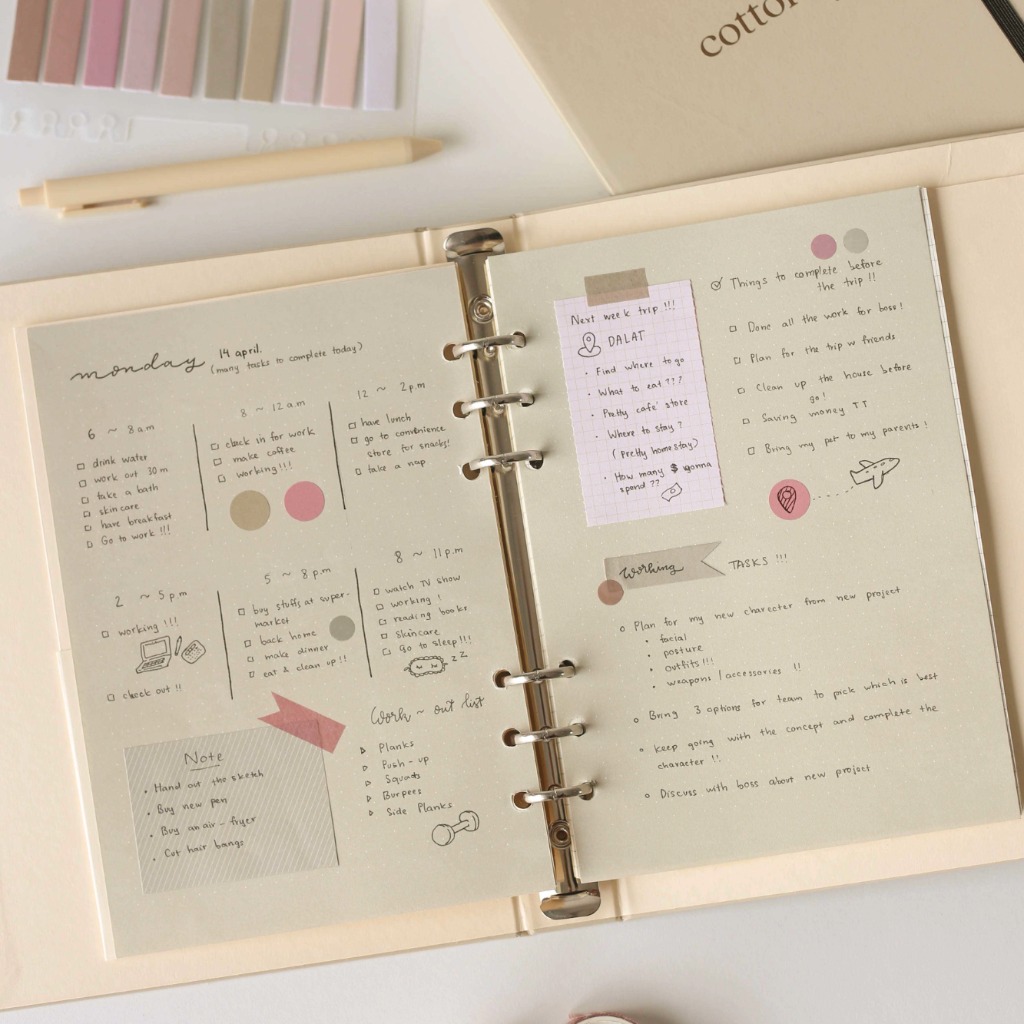 cotton
monday 14 april.
(many tasks to complete today)
6 ~ 8 am
drink water
work out 30 m
take a bath
skin care
have breakfast
Go to work !!!
8 ~ 12 a.m
check in for work
make coffee
working!!!
12 ~ 2 p.m
have lunch
go to convenience
store for snacks!
take a nap
2 ~ 5 pm
working !!!
check out !!
5 ~ 8 p.m
buy stuffs at super-
market
back home
make dinner
eat & clean up !!
8 ~ 11 p.m
watch TV show
working !
reading books
skincare
Go to sleep!!!
z Z
Note
Hand out the sketch
Buy new pen
Buy an air-fryer
Cut hair bangs
Work ~ out list
Planks
Push-up
Squats
Burpees
Side Planks
Next week trip !!!
DALAT
Find where to go
What to eat ???
Pretty cafe' store
Where to stay ?
(Pretty homestay)
How many $ gonna
spend ??
Things to complete before
the trip !!
Done all the work for boss!
Plan for the trip w friends
Clean up the house before
go!
Saving money TT
Bring my pet to my parents !
Working TASKS !!!
Plan for my new charecter from new project
facial
posture
outfits !!!
weapons / accessories !!
Bring 3 options for team to pick which is best
Keep going with the concept and complete the
character !!
Discuss with boss about new project